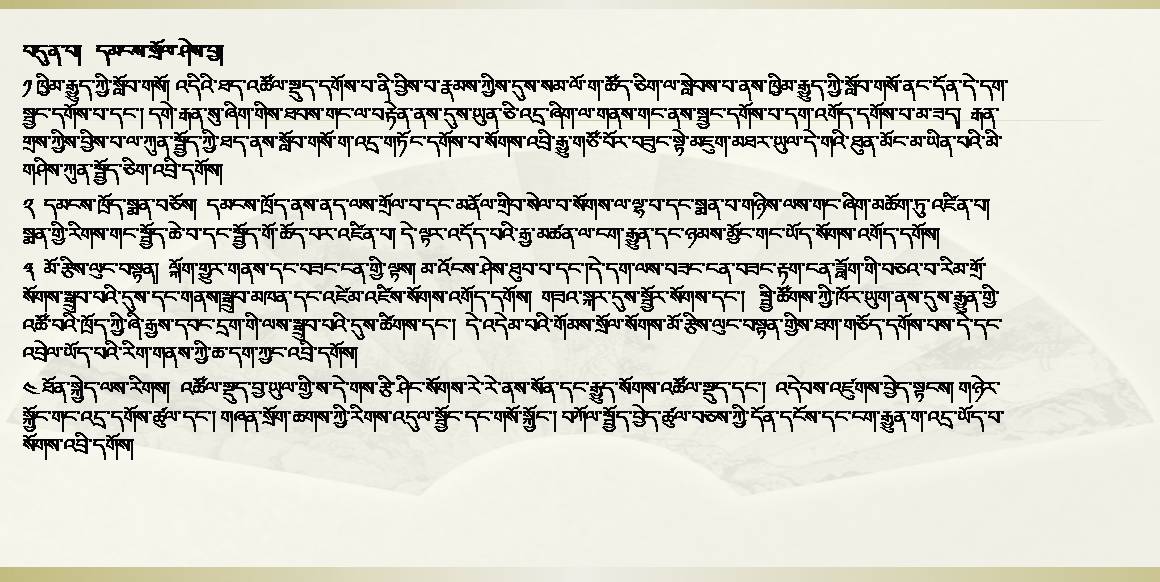 བདུན་པ། དམངས་སྲོལ་ཤེས་བྱ།
༡ ཁྱིམ་རྒྱུད་ཀྱི་སློབ་གསོ། འདིའི་ཐད་འཚོལ་སྡུད་དགོས་པ་ནི་བྱིས་པ་རྣམས་ཀྱིས་དུས་སམ་ལོ་ག་ཚོད་ཅིག་ལ་སླེབས་པ་ནས་ཁྱིམ་རྒྱུད་ཀྱི་སློབ་གསོ་ནང་དོན་དེ་དག་
སྦྱང་དགོས་པ་དང་། དགེ་རྒན་སུ་ཞིག་གིས་ཐབས་གང་ལ་བརྟེན་ནས་དུས་ཡུན་ཅི་འདྲ་ཞིག་ལ་གནས་གང་ནས་སྦྱང་དགོས་པ་དག་འགོད་དགོས་པ་མ་ཟད། རྒན་
གྲས་ཀྱིས་བྱིས་པ་ལ་ཀུན་སྤྱོད་ཀྱི་ཐད་ནས་སློབ་གསོ་ག་འདྲ་གཏོང་དགོས་པ་སོགས་འབྲི་རྒྱུ་གཙོ་བོར་བཟུང་སྟེ་མཇུག་མཐར་ཡུལ་དེ་གའི་ཐུན་མོང་མ་ཡིན་པའི་མི་
གཤིས་ཀུན་སྤྱོད་ཅིག་འབྲི་དགོས།
༢ དམངས་ཁྲོད་སྨན་བཅོས། དམངས་ཁྲོད་ནས་ནད་ལས་གྲོལ་བ་དང་མནོལ་གྲིབ་སེལ་བ་སོགས་ལ་ལྷ་བ་དང་སྨན་པ་གཉིས་ལས་གང་ཞིག་མཆོག་ཏུ་འཛིན་པ།
སྨན་གྱི་རིགས་གང་སྤྱོད་ཆེ་བ་དང་སྤྱོད་གོ་ཆོད་པར་འཛིན་པ། དེ་ལྟར་འདོད་པའི་རྒྱུ་མཚན་ལ་ངག་རྒྱུན་དང་ཉམས་མྱོང་གང་ཡོད་སོགས་འགོད་དགོས།
༣ མོ་རྩིས་ལུང་བསྟན། ལྐོག་གྱུར་གནས་དང་བཟང་ངན་གྱི་ལྟས། མ་འོངས་ཤེས་ཐུབ་པ་དང་།དེ་དག་ལས་བཟང་ངན་བཟང་རྟག་ངན་ཟློག་གི་བཅའ་བ་རིམ་གྲོ་
སོགས་སྒྲུབ་པའི་དུས་དང་གནས།སྒྲུབ་མཁན་དང་འཛོམ་འཛོས་སོགས་འགོད་དགོས། གཟའ་སྐར་དུས་སྦྱོར་སོགས་དང་། སྤྱི་ཚོགས་ཀྱི་ཁོར་ཡུག་ནས་དུས་རྒྱུན་གྱི་
འཚོ་བའི་ཁྲོད་ཀྱི་ཞི་རྒྱས་དབང་དྲག་གི་ལས་སྒྲུབ་པའི་དུས་ཚིགས་དང་། དེ་འདེམ་པའི་གོམས་སྲོལ་སོགས་མོ་རྩིས་ལུང་བསྟན་གྱིས་ཐག་གཅོད་དགོས་པས་དེ་དང་
འབྲེལ་ཡོད་པའི་རིག་གནས་ཀྱི་ཆ་དག་ཀྱང་འབྲི་དགོས།
༤ ཐོན་སྐྱེད་ལས་རིགས། འཚོལ་སྡུད་བྱ་ཡུལ་གྱི་ས་དེ་གས་རྩི་ཤིང་སོགས་རེ་རེ་ནས་སོན་དང་རྒྱུད་སོགས་འཚོལ་སྡུད་དང་། འདེབས་འཛུགས་བྱེད་སྟངས། གཉེར་
སྐྱོང་གང་འདྲ་དགོས་ཚུལ་དང་། གཞན་སྲོག་ཆགས་ཀྱི་རིགས་འདུལ་སྦྱོང་དང་གསོ་སྐྱོང་། བཀོལ་སྤྱོད་བྱེད་ཚུལ་བཅས་ཀྱི་དོན་དངོས་དང་ངག་རྒྱུན་ག་འདྲ་ཡོད་པ་
སོགས་འབྲི་དགོས།